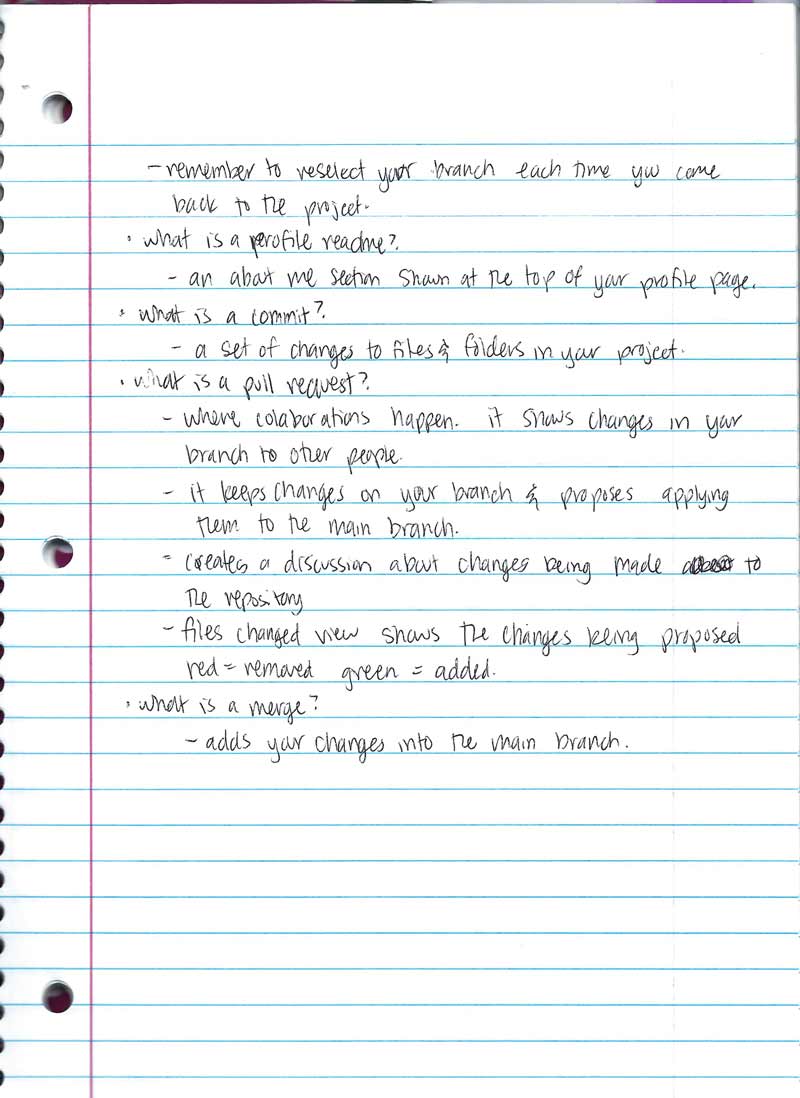 - remember to reselect your branch each time you come
back to the project.
• what is a profile readme?
- an about me section shown at the top of your profile page.
• what is a commit?
- a set of changes to files & folders in your project.
• what is a pull request?
- where colaborations happen. it shows changes in your
branch to other people.
- it keeps changes on your branch & proposes applying
them to the main branch.
- creates a discussion about changes being made to
the repository
- files changed view shows the changes being proposed
red = removed green = added.
• what is a merge?
- adds your changes into the main branch.